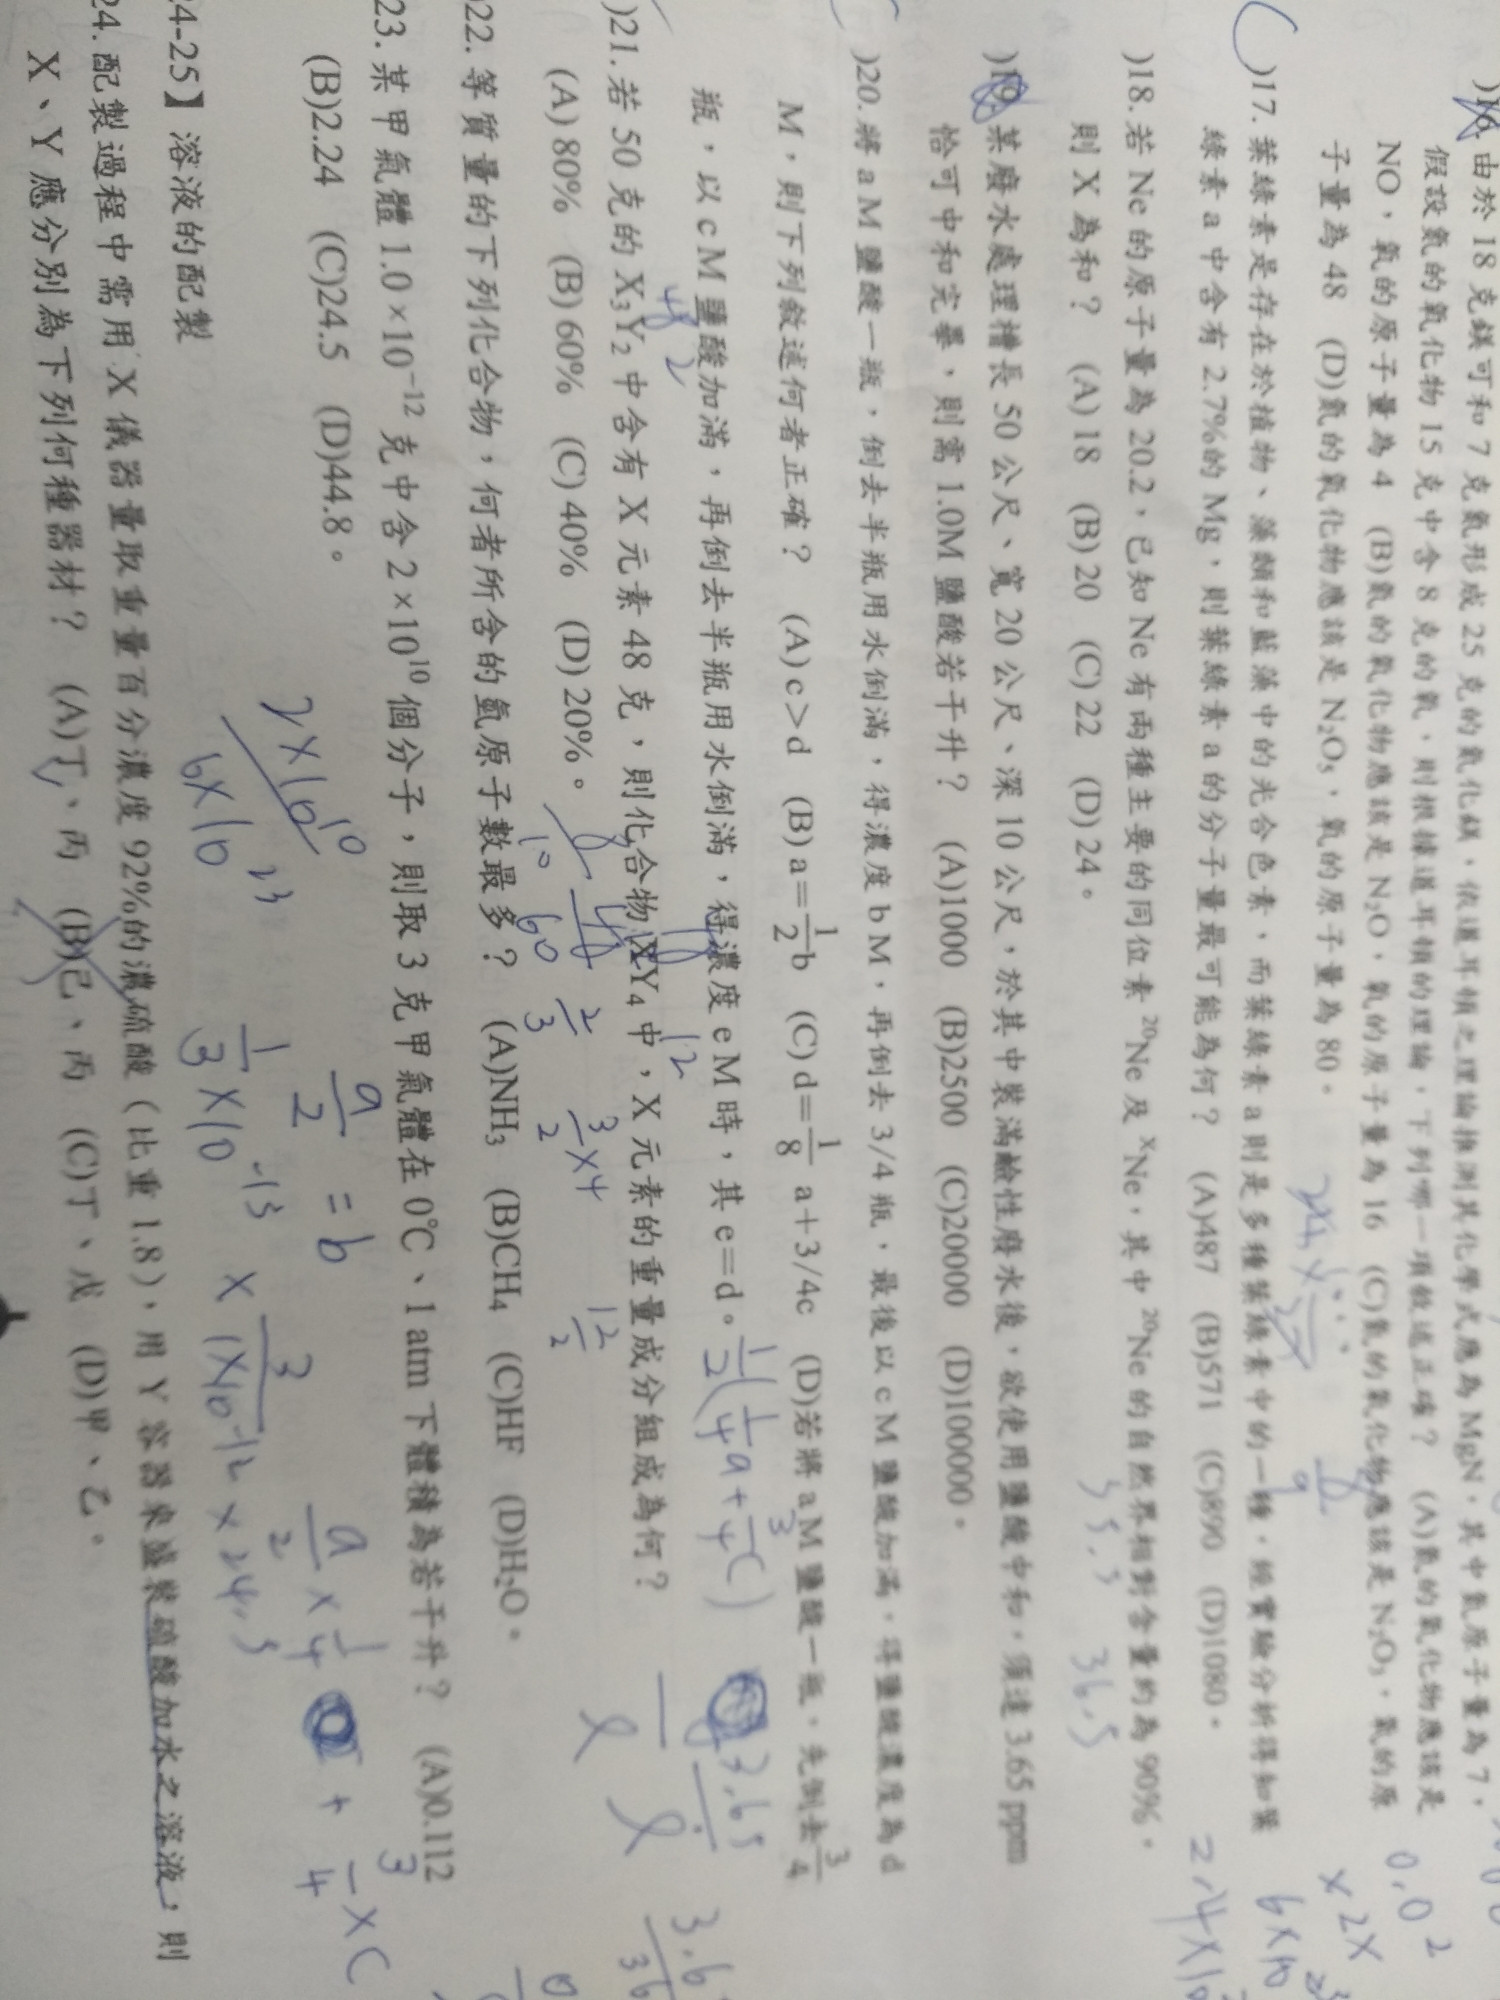 )16. 由於 18 克鎂可和 7 克氮形成 25 克的氮化鎂，依道耳頓之理論推測其化學式應為 MgN，其中氮原子量為 7，
假設氮的氧化物 15 克中含 8 克的氧，則根據道耳頓的理論，下列哪一項敘述正確？ (A)氮的氧化物應該是
NO，氧的原子量為 4 (B)氮的氧化物應該是 N₂O，氧的原子量為 16 (C)氮的氧化物應該是 N₂O₃，氧的原
子量為 48 (D)氮的氧化物應該是 N₂O₅，氧的原子量為 80。
)17. 葉綠素是存在於植物、藻類和藍藻中的光合色素，而葉綠素 a 則是多種葉綠素中的一種，經實驗分析得知葉
綠素 a 中含有 2.7%的 Mg，則葉綠素 a 的分子量最可能為何？ (A)487 (B)571 (C)890 (D)1080。
)18. 若 Ne 的原子量為 20.2，已知 Ne 有兩種主要的同位素 ²⁰Ne 及 ˣNe，其中 ²⁰Ne 的自然界相對含量約為 90%，
則 X 為和？ (A) 18 (B) 20 (C) 22 (D) 24。
)19. 某廢水處理槽長 50 公尺、寬 20 公尺、深 10 公尺，於其中裝滿鹼性廢水後，欲使用鹽酸中和，須達 3.65 ppm
恰可中和完畢，則需 1.0M 鹽酸若干升？ (A)1000 (B)2500 (C)20000 (D)100000。
)20. 將 a M 鹽酸一瓶，倒去半瓶用水倒滿，得濃度 b M，再倒去 3/4 瓶，最後以 c M 鹽酸加滿，得鹽酸濃度為 d
M，則下列敘述何者正確？ (A) c＞d (B) a＝1/2 b (C) d＝1/8 a＋3/4c (D)若將 a M 鹽酸一瓶，先倒去 3/4
瓶，以 c M 鹽酸加滿，再倒去半瓶用水倒滿，得濃度 e M 時，其 e＝d。
)21. 若 50 克的 X₃Y₂ 中含有 X 元素 48 克，則化合物 XY₄ 中，X 元素的重量成分組成為何？
(A) 80% (B) 60% (C) 40% (D) 20%。
)22. 等質量的下列化合物，何者所含的氫原子數最多？ (A)NH₃ (B)CH₄ (C)HF (D)H₂O。
23. 某甲氣體 1.0×10⁻¹² 克中含 2×10¹⁰ 個分子，則取 3 克甲氣體在 0℃、1 atm 下體積為若干升？ (A)0.112
(B)2.24 (C)24.5 (D)44.8。
24-25】溶液的配製
24. 配製過程中需用 X 儀器量取重量百分濃度 92%的濃硫酸（比重 1.8），用 Y 容器來盛裝硫酸加水之溶液，則
X、Y 應分別為下列何種器材？ (A)丁、丙 (B)己、丙 (C)丁、戊 (D)甲、乙。